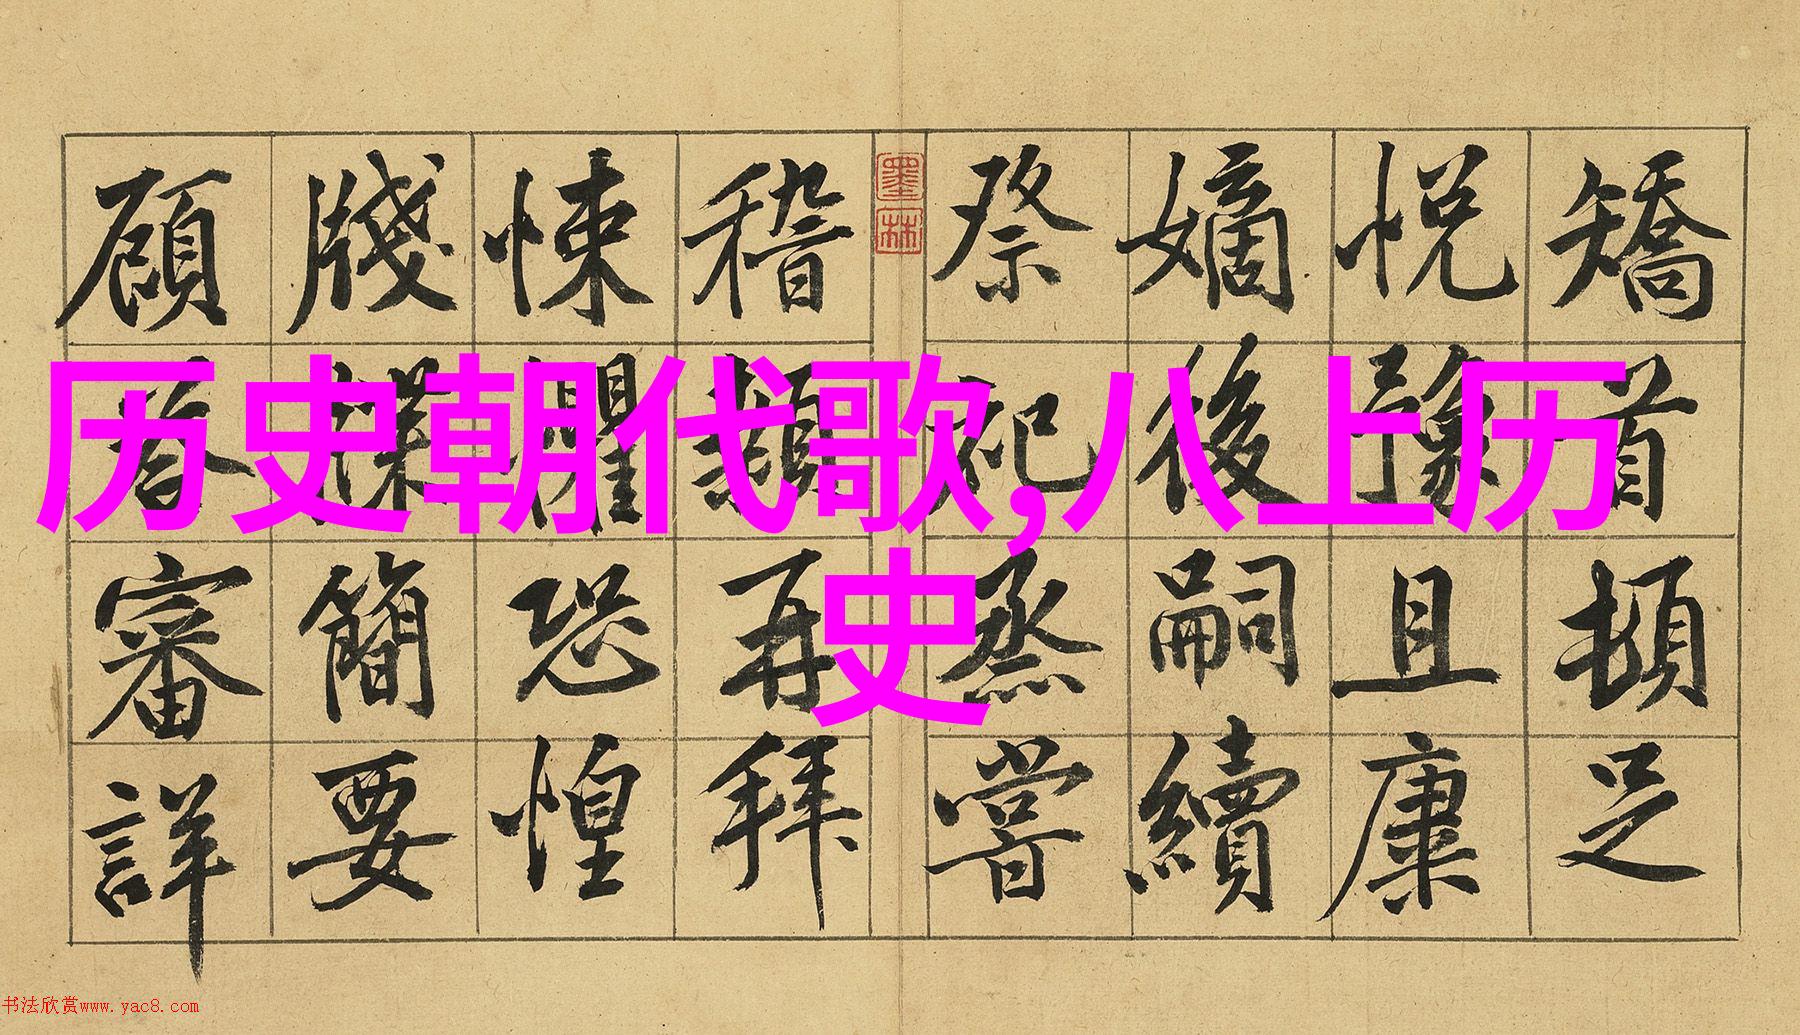 历史朝代歌,八上历
史
矯首頓足
悅豫且康
嫡後嗣續
祭祀烝嘗
墨林
稽顙再拜
悚懼恐惶
牋牒簡要
顧答審詳
书法欣赏www.yac8.com